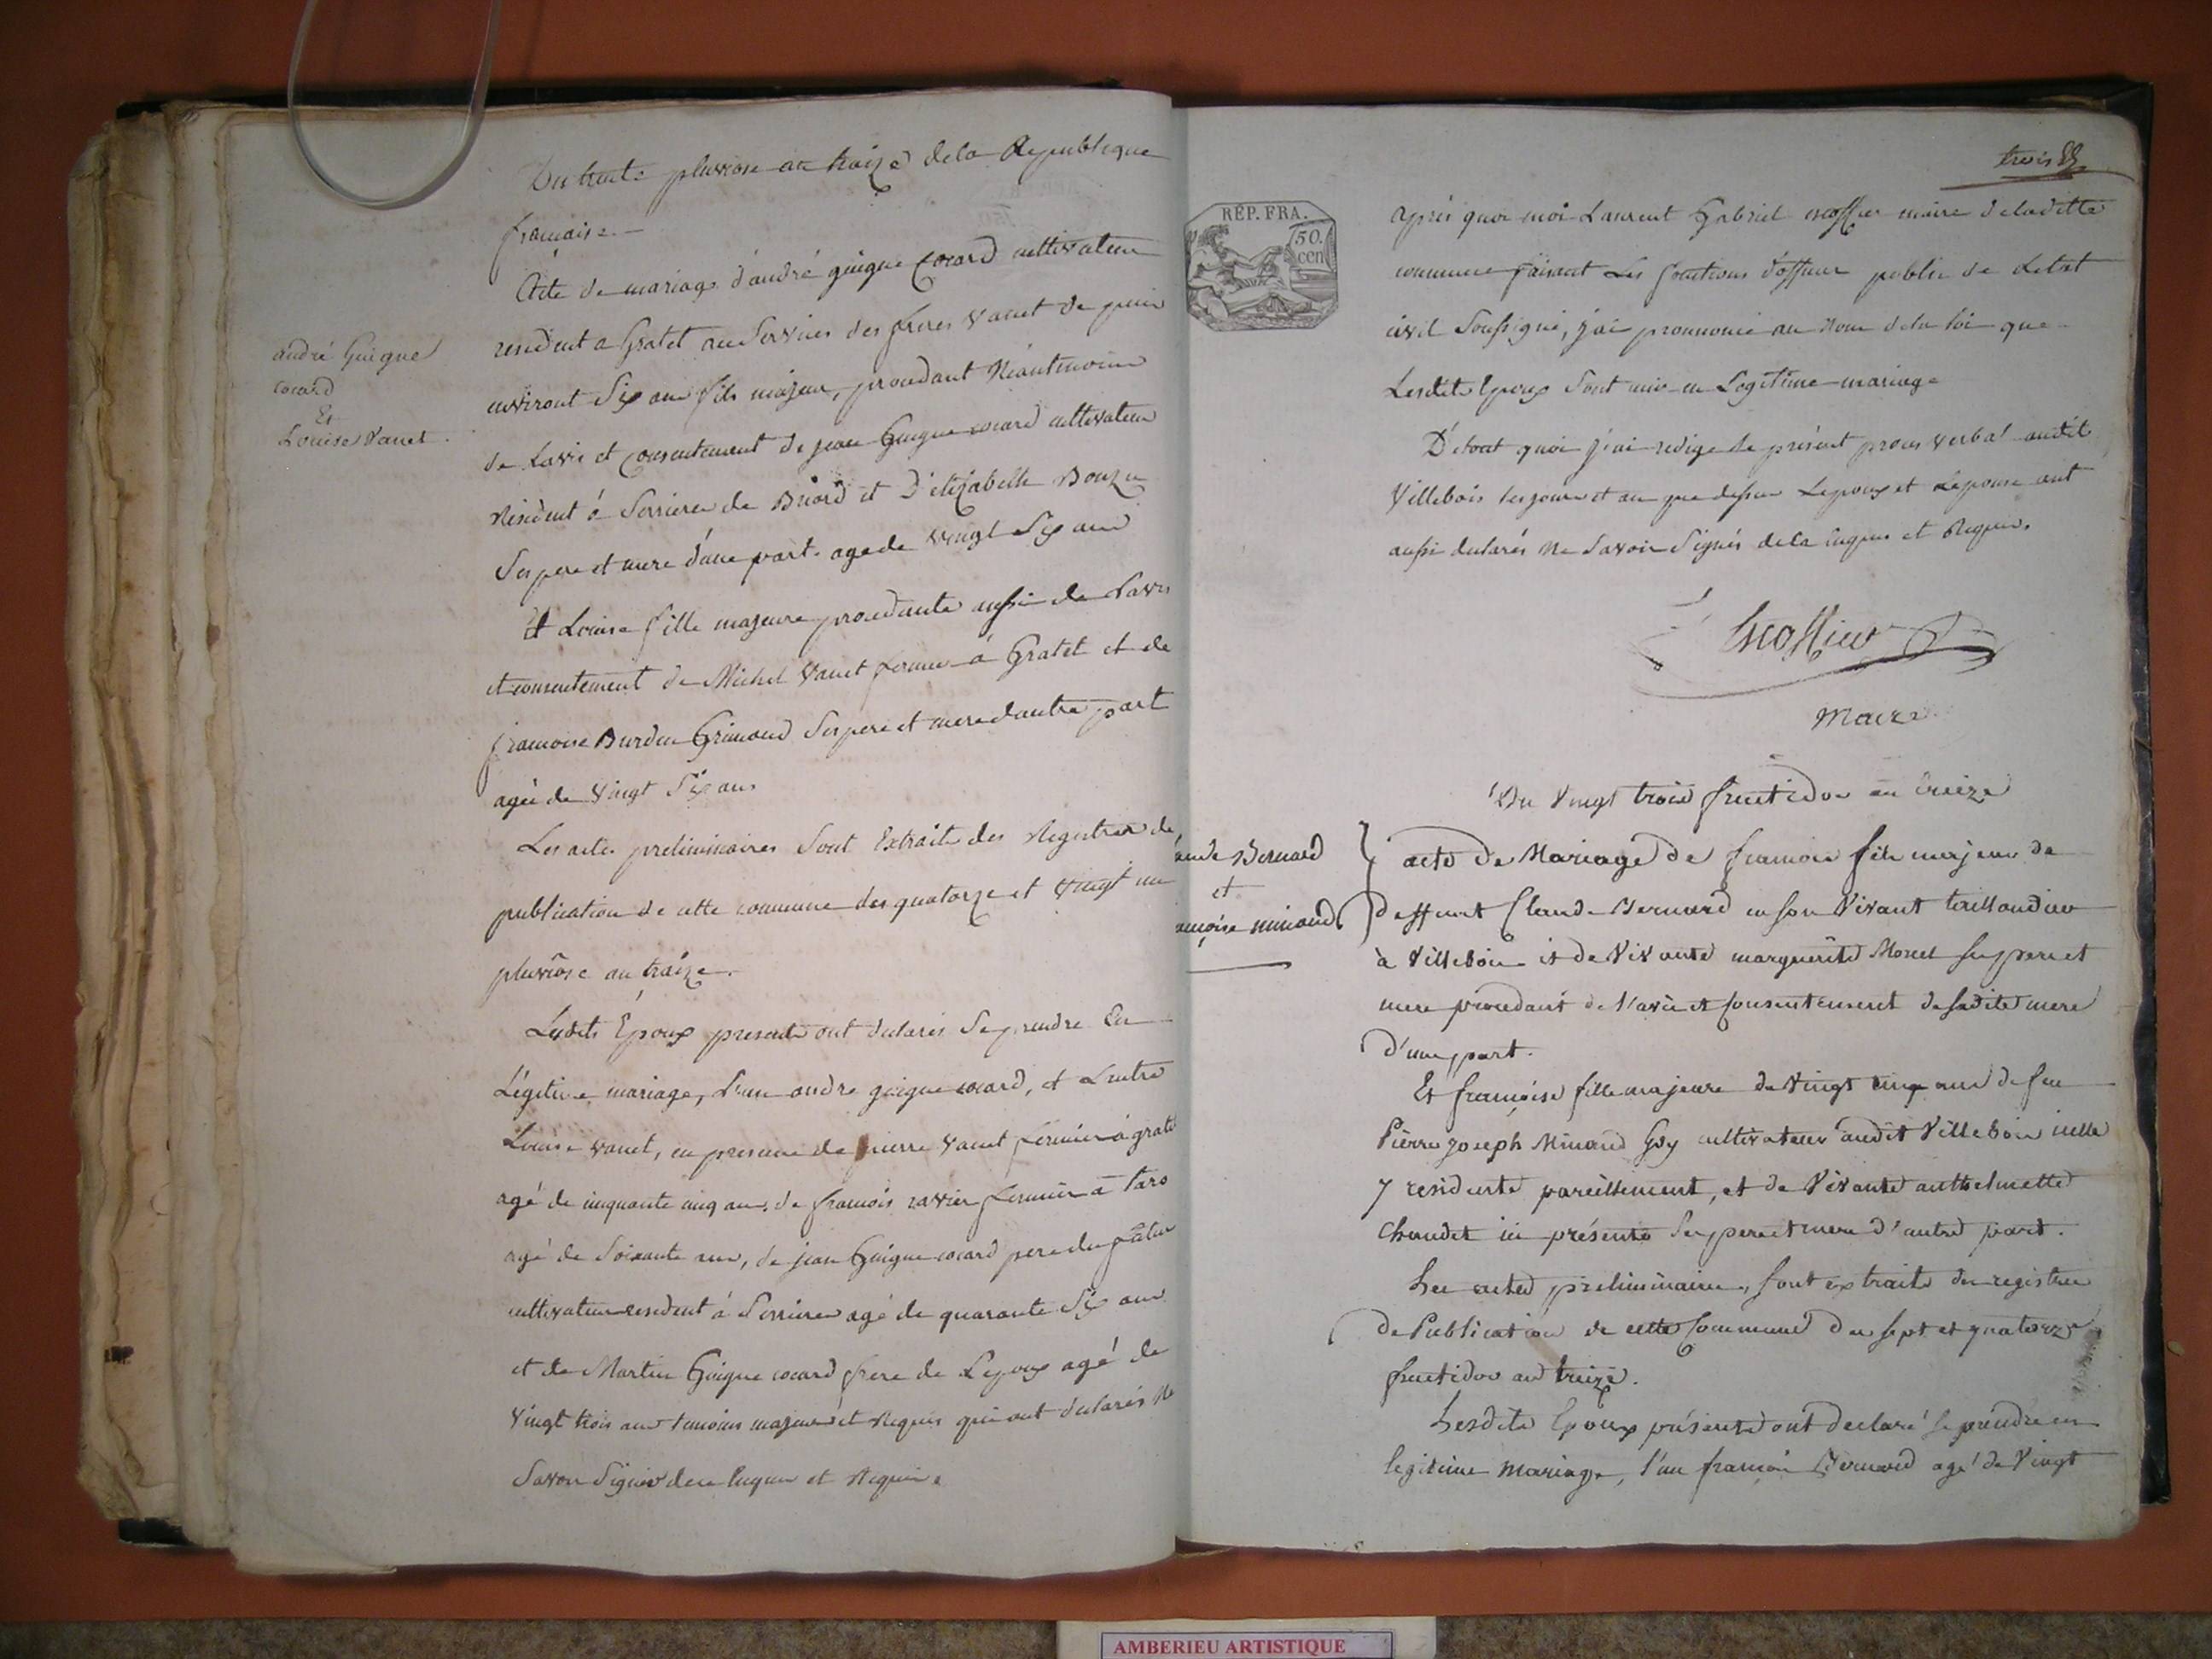 Du trente pluviose an traize dela Republique
francaise.
andré Guigue
cocard
Et
Louise Vanet.
Acte de mariage d'andré guigue cocard cultivateur
resident a Gratet au Services des freres vanet de puis
environt Six ans fils majeur, procedant Néantmoins
de Lavis et consentement de jean Guigue cocard cultivateur
Résident à Serrieres de Briord et D'elizabelle Bouzu
Ses pere et mere d'une part. age de vingt Six ans
Et Louise fille majeure procedante aussi de Lavis
et consentement de Michel Vanet fermier à Gratet et de
francoise Burdin Grimaud Ses pere et mere dautre part
agée de Vingt Six ans
Les actes preliminaires Sont Extraits des Registres de
publication de cette commune des quatorze et vingt un
pluviôse an traize.
Lesdits Epoux presents ont declarés Se prendre En
Légitime mariage, Lun andre guigue cocard, et Lautre
Louise vanet, en presence de pierre vanet fermier à grate
agé de cinquante cinq ans, de francois ravier fermier à
agé de Soixante ans, de jean Guigue cocard pere du futur
cultivateur resident à Serrieres agé de quarante Six ans
et de Martin Guigue cocard frere de Lepoux agé de
Vingt trois ans temoins majeurs et Requis qui ont declarés Ne
Savoir Signer de ce Enquis et Requis.
trois
RÉP. FRA.
50.
cen
après quoi moi Laurent Gabriel escoffier maire deladitte
commune faisant Les fonctions d'officier public de Letat
civil Soussigné, j'ai prononcé au Nom dela loi que
Lesdits Epoux Sont unis en Legitime mariage
De tout quoi j'ai redigé le présent proces verbal audit
Villebois les jour et an que dessus Lepoux et Lepouse ont
aussi declarés Ne Savoir Signés dela Enquis et Requis.
Escoffier
Maire
Du Vingt trois fructidor an treize
aude Bernard
et
ançoise minaud
acte de Mariage de francois fils majeur de
deffunt Claude Bernard en son Vivant taillandier
à Villebois et de Vivante marguerite Morel ses pere et
mere procedant de l'avis et consentement de sadite mere
d'une part.
Et françoise fille majeure de Vingt cinq ans de feu
Pierre joseph Minaud Guy cultivateur audit Villebois icelle
y residente pareillement, et de Vivante anthelmette
Chaudet ici présente Ses pere et mere d'autre part.
Les actes preliminaires, sont extraits des registres
de Publication de cette Commune des sept et quatorze
fructidor an treize.
Lesdits Epoux présents ont declaré se prendre en
legitime mariage, l'un francois Bernard agé de Vingt
AMBERIEU ARTISTIQUE